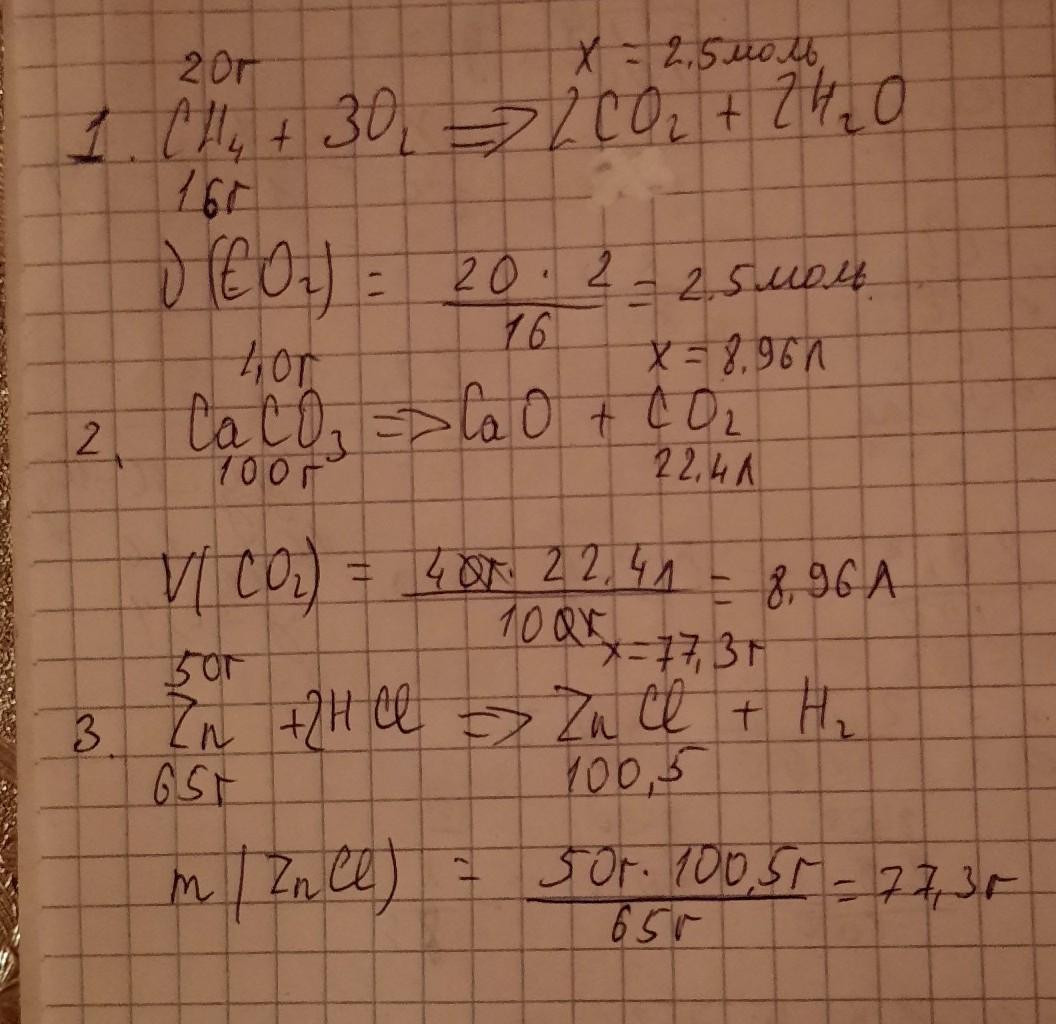 20г x = 2.5моль
1. CH₄ + 3O₂ => 2CO₂ + 2H₂O
16г
υ(CO₂) = 20 · 2 / 16 = 2.5моль.
40г x = 8.96л
2. CaCO₃ => CaO + CO₂
100г 22.4л
V(CO₂) = 40г · 22.4л / 100г = 8.96л
50г x=77,3г
3. Zn +2HCl => ZnCl + H₂
65г 100,5
m(ZnCl) = 50г · 100,5г / 65г = 77,3г